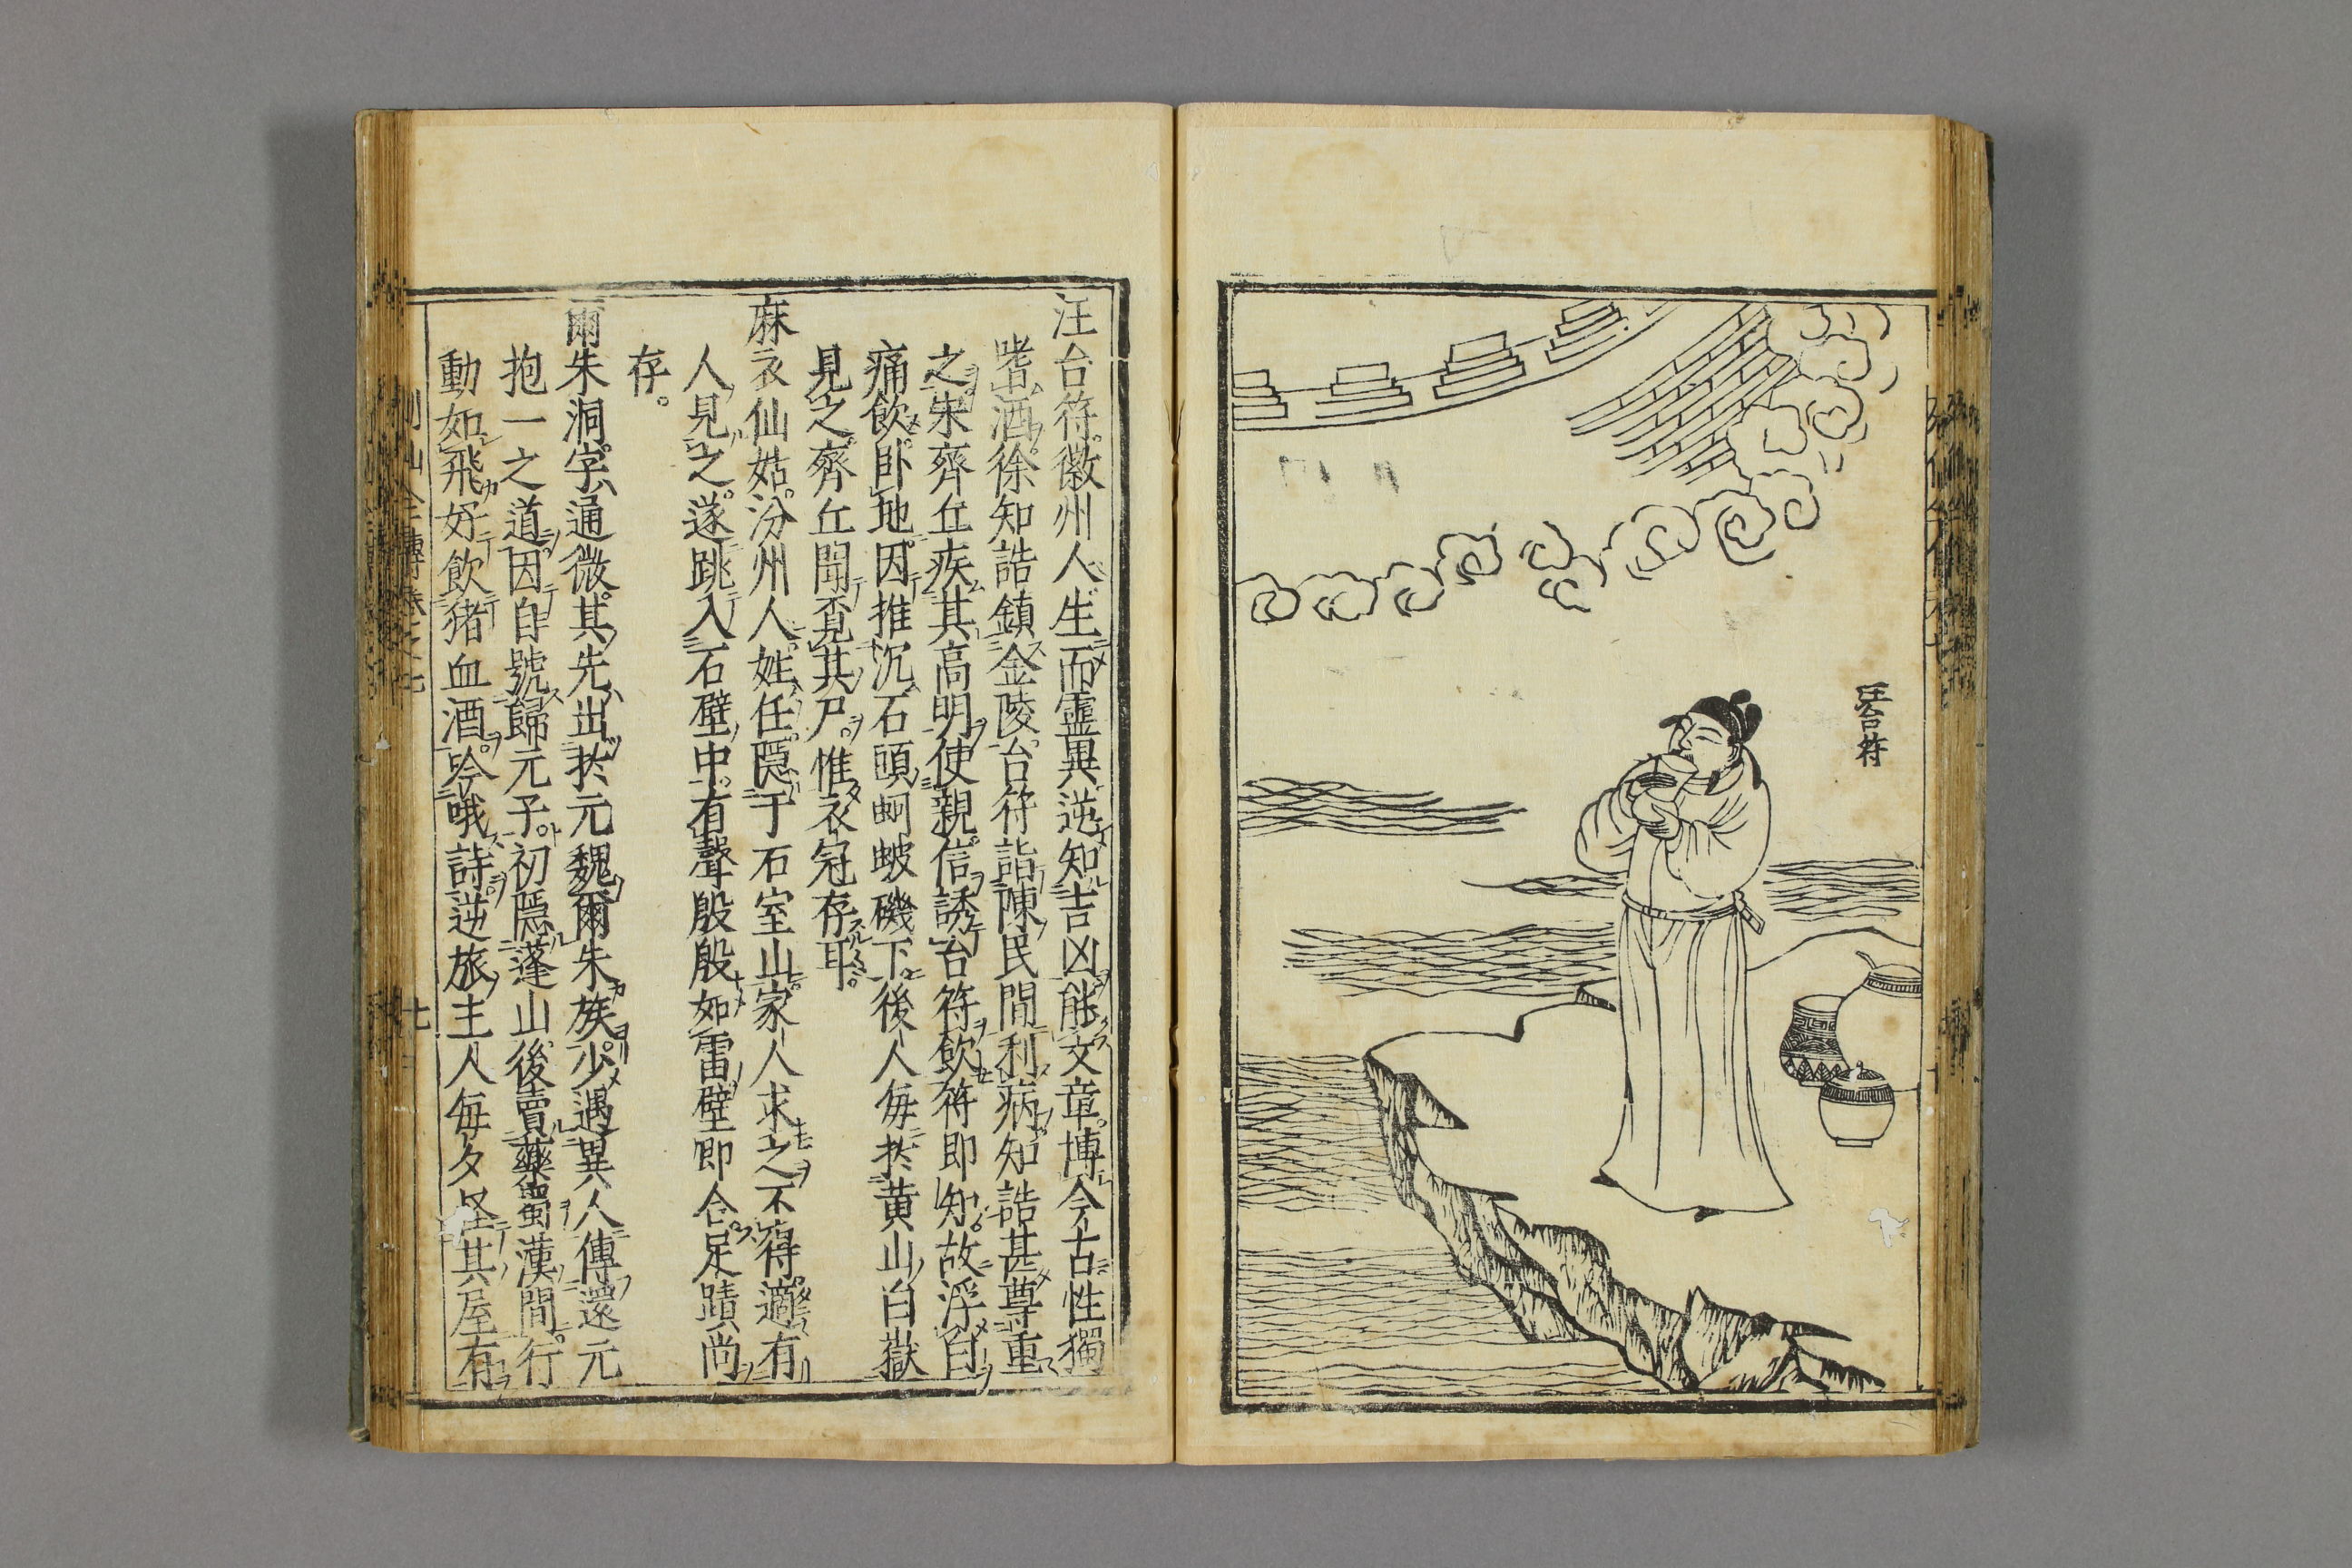 汪台符
汪台符。徽州人。生而靈異。逆知吉凶。能文章。博今古。性獨
嗜酒。徐知誥鎮金陵。台符詣陳民間利病。知誥甚尊重
之。宋齊丘疾其高明。使親信誘台符飲。符即知。故浮白
痛飲。卧地。因推沉石頭蚵蚾磯下。後人每於黄山白嶽
見之。齊丘聞。覓其尸。惟衣冠存耳。
麻衣仙姑。汾州人。姓任。隠于石室山。家人求之不得。適有
人見之。遂跳入石壁中。有聲殷殷如雷。壁即合。足蹟尚
存。
爾朱洞。字通微。其先出於元魏爾朱族。少遇異人傳還元
抱一之道。因自號歸元子。初隠蓬山。後賣藥蜀漢間。行
動如飛。好飲猪血酒。吟哦詩。逆旅主人每夕怪其屋有
列仙全傳卷之七
七